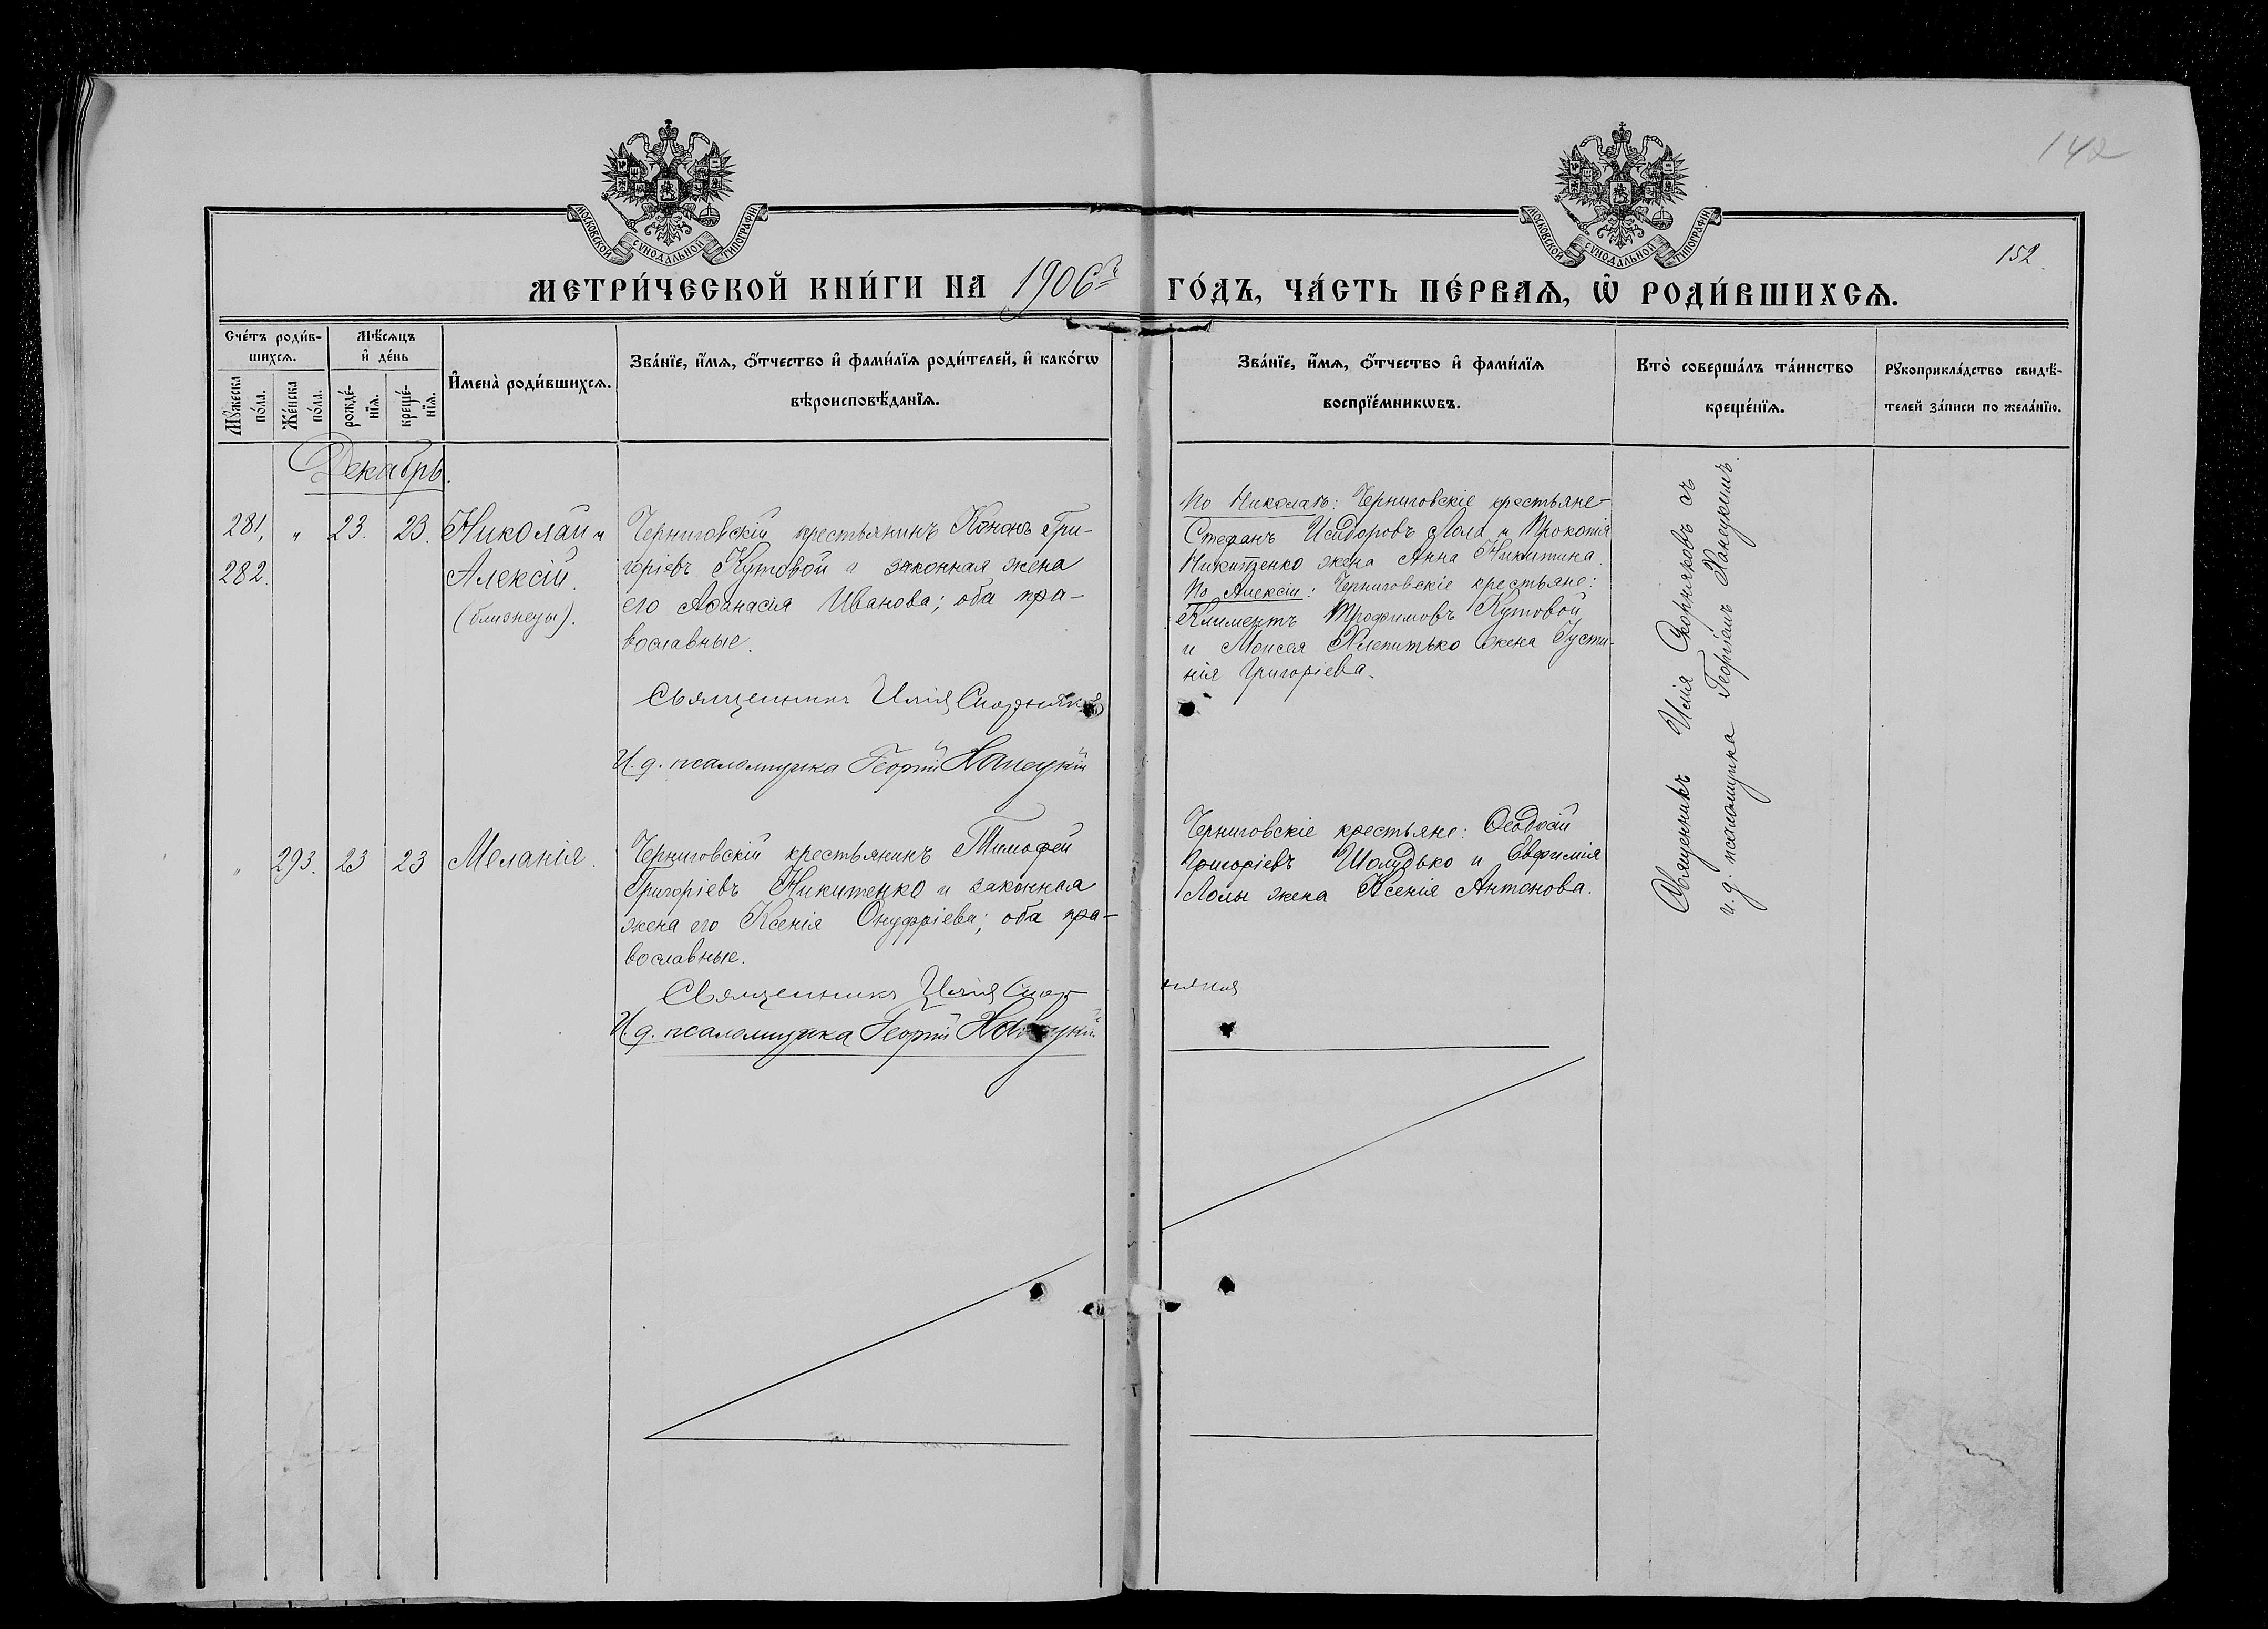 142
МОСКОВСКОЙ СѴНОДАЛЬНОЙ ТИПОГРАФІИ
МОСКОВСКОЙ СѴНОДАЛЬНОЙ ТИПОГРАФІИ
152.
МЕТРИ́ЧЕСКОЙ КНИ́ГИ НА 1906й ГО́ДЪ, ЧА́СТЬ ПЕ́РВАѦ, Ѡ҆ РОДИ́ВШИХСѦ.
Сче́тъ роди́в-
шихсѧ.
Мꙋ́жеска
по́ла.
Же́нска
по́ла.
Мѣ́сѧцъ
и҆ де́нь
рожде́-
нїѧ.
креще́-
нїѧ.
И҆мена̀ роди́вшихсѧ.
Зва́нїе, и҆́мѧ, ѻ҆́тчество и҆ фами́лїѧ роди́телей, и҆ како́гѡ
вѣроисповѣ́данїѧ.
Зва́нїе, и҆́мѧ, ѻ҆́тчество и҆ фами́лїѧ
воспрїе́мникѡвъ.
Кто̀ соверша́лъ та́инство
креще́нїѧ.
Рꙋкоприкла́дство свидѣ́-
телей за́писи по жела́нїю.
Декабрь.
281, " 23. 23. Николай и
282. Алексій.
(близнецы).
Черниговскій крестьянинъ Кононъ Гри-
горіевъ Кутовой и законная жена
его Аѳанасія Иванова; оба пра-
вославные.
Священникъ Илія Скорняковъ
И. д. псаломщика Георгій Ханецкій
По Николаѣ: Черниговскіе крестьяне
Стефанъ Исидоровъ Лола и Прокопія
Никитенко жена Анна Никитина.
По Алексіи: Черниговскіе крестьяне:
Климентъ Трофимовъ Кутовой
и Моисея Хлепитько жена Густи-
нія Григоріева.
Священникъ Илія Скорняковъ съ
и. д. псаломщика Георгіемъ Ханецкимъ.
" 293. 23 23 Меланія.
Черниговскій крестьянинъ Тимофей
Григоріевъ Никитенко и законная
жена его Ксенія Онуфріева; оба пра-
вославные.
Священникъ Илія Скорняков
И. д. псаломщика Георгій Ханецкій.
Черниговскіе крестьяне: Ѳеодосій
Григоріевъ Шолудько и Евфимія
Лолы жена Ксенія Антонова.